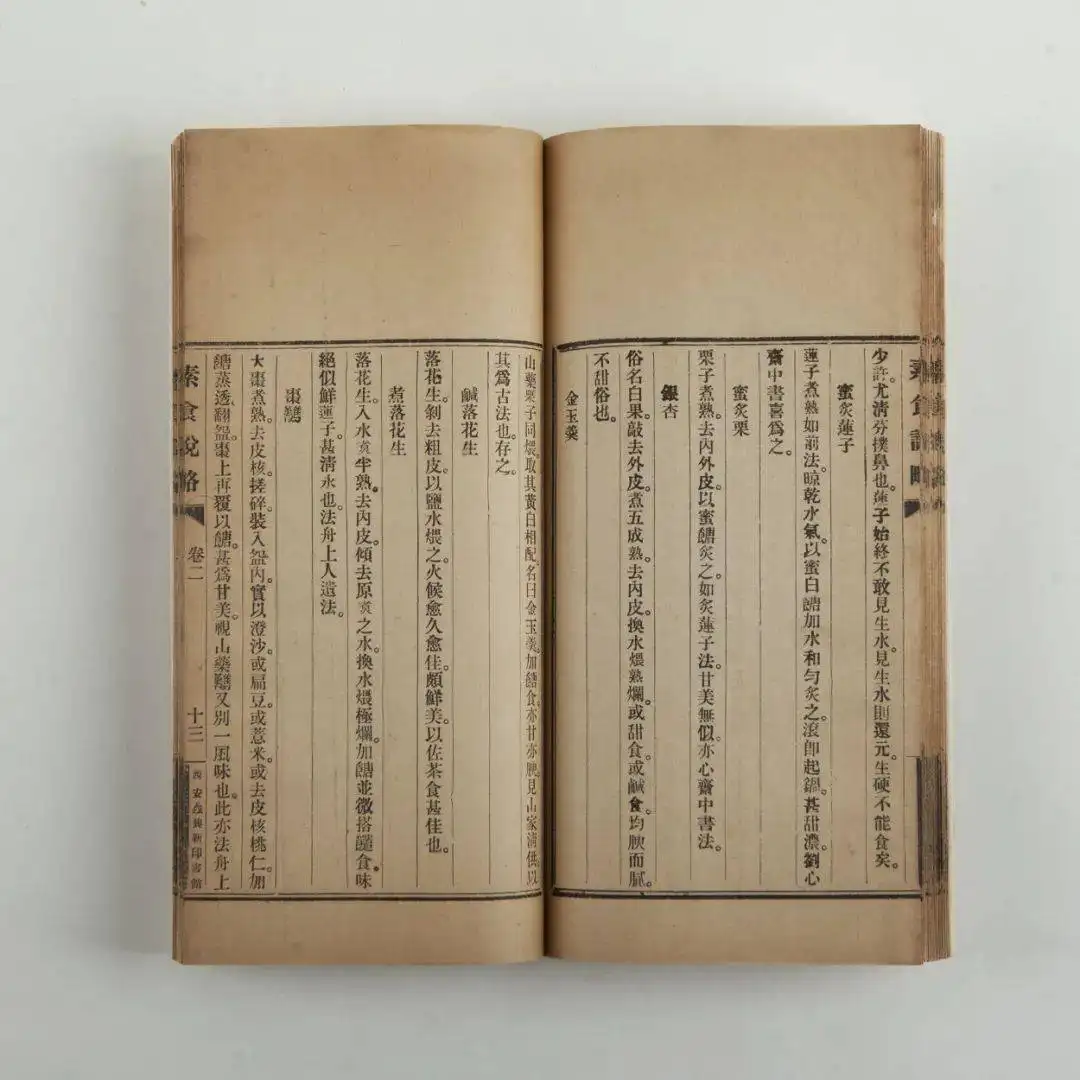 素食說略
少許。尤清芬撲鼻也。蓮子始終不敢見生水。見生水則還元生硬不能食矣。
蜜炙蓮子
蓮子煮熟如前法。晾乾水氣。以蜜白餹加水和勻炙之。滾即起鍋。甚甜濃。劉心
齋中書喜爲之。
蜜炙栗
栗子煮熟。去內外皮。以蜜餹炙之。如炙蓮子法。甘美無似。亦心齋中書法。
銀杏
俗名白果。敲去外皮。煮五成熟。去內皮。換水煨熟爛。或甜食。或鹹食。均腴而膩。
不甜俗也。
金玉羹
山藥栗子同煨。取其黃白相配。名曰金玉羹。加餹食。亦甘亦腴。見山家清供。以
其爲古法也。存之。
鹹落花生
落花生。剝去粗皮。以鹽水煨之。火候愈久愈佳。頗鮮美。以佐茶食甚佳也。
煮落花生
落花生入水煑半熟。去內皮。傾去原煑之水。換水煨極爛。加餹並微搭饈食。味
絕似鮮蓮子。甚清永也。法舟上人遺法。
棗
大棗煮熟。去皮核。搓碎。裝入盌內。實以澄沙。或扁豆。或薏米。或去皮核桃仁。加
餹蒸透。翻盌。棗上再覆以餹。甚爲甘美。視山藥又別一風味也。此亦法舟上
素食說略
卷二
十三
西安 新印書館